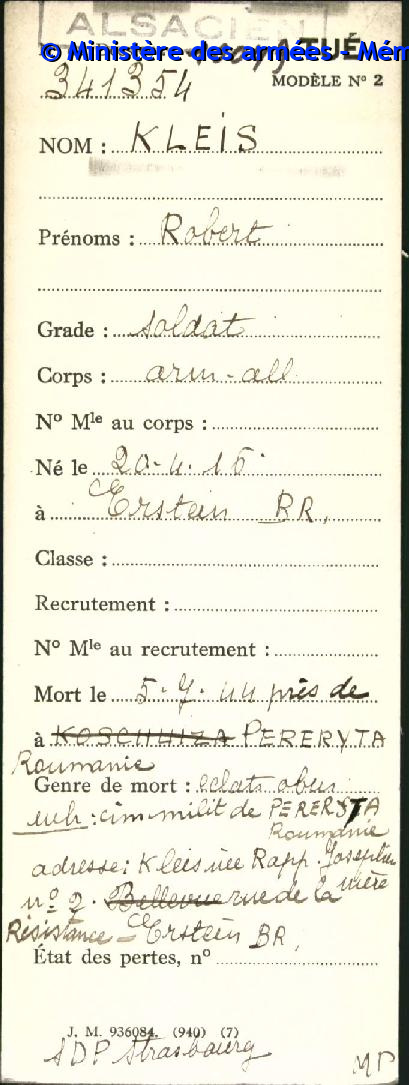 ALSACIEN
© Ministère des armées - Mém
TUÉ
341354
MODÈLE N° 2
NOM : KLEIS
Prénoms : Robert
Grade : soldat
Corps : arm-all
N° Mle au corps :
Né le 20-4-15
à Erstein BR,
Classe :
Recrutement :
N° Mle au recrutement :
Mort le 5-7-44 près de
à KOSCHUIZA PERERYTA
Roumanie
Genre de mort : eclats obus
inh : cim milit de PERERYTA
Roumanie
adresse: Kleis née Rapp Joséphine
mère
n° 2. Bellevue rue de la
Résistance - Erstein BR,
État des pertes, n°
J. M. 936084. (940) (7)
SDP Strasbourg
MP